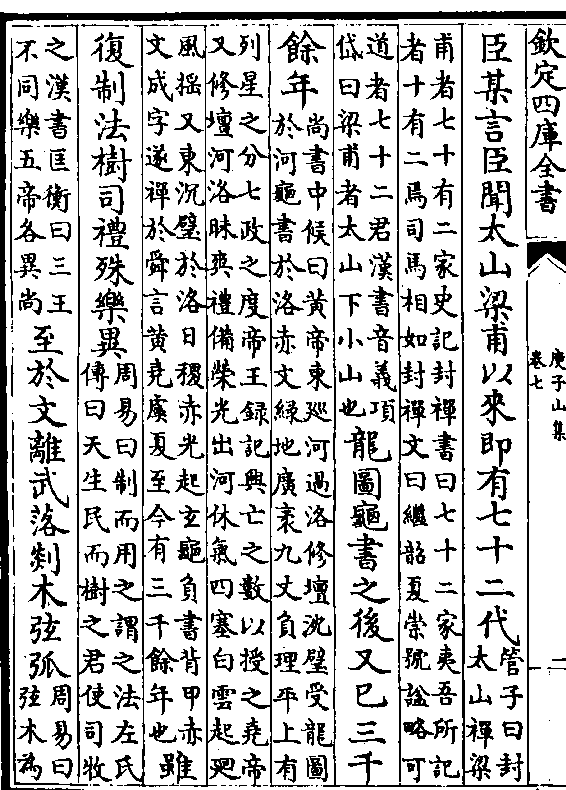 欽定四庫全書
庾子山集
卷七
二
臣某言臣聞太山梁甫以來即有七十二代
管子曰封
太山禪梁
甫者七十有二家史記封禪書曰七十二家夷吾所記
者十有二焉司馬相如封禪文曰繼韶夏崇號諡略可
道者七十二君漢書音義項
岱曰梁甫者太山下小山也
龍圖龜書之後又已三千
餘年
尚書中候曰黃帝東廵河過洛修壇沈璧受龍圖
於河龜書於洛赤文綠地廣袤九丈負理平上有
列星之分七政之度帝王録記興亡之數以授之堯帝
又修壇河洛昧爽禮備榮光出河休氣四塞白雲起廻
風揺又東沉璧於洛日稷赤光起玄龜負書背甲赤
文成字遂禪於舜言黃堯虞夏至今有三千餘年也
雖
復制法樹司禮殊樂異
周易曰制而用之謂之法左氏
傳曰天生民而樹之君使司牧
之漢書匡衡曰三王
不同樂五帝各異尚
至於文離武落剡木弦弧
周易曰
弦木為